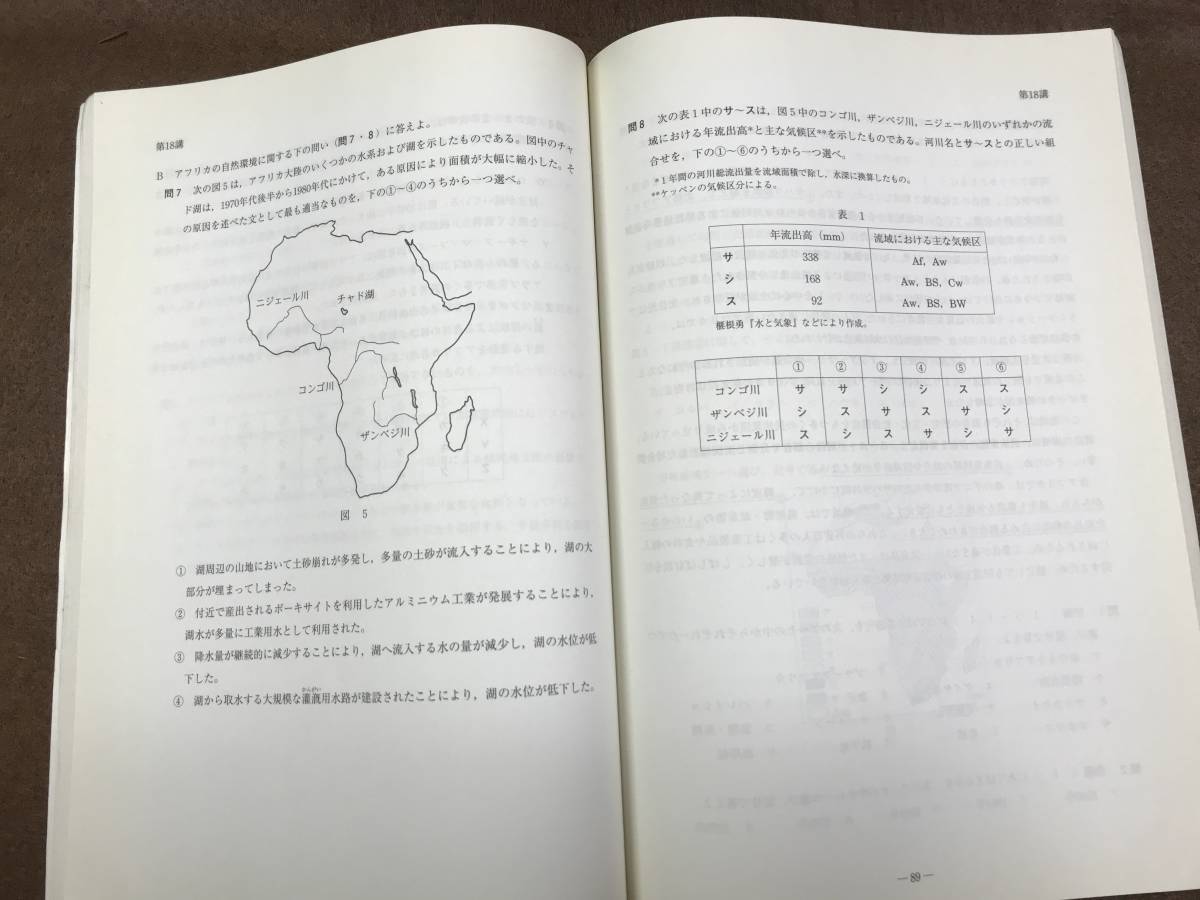 第18講
B アフリカの自然環境に関する下の問い(問7・8)に答えよ。
問7 次の図5は，アフリカ大陸のいくつかの水系および湖を示したものである。図中のチャ
ド湖は，1970年代後半から1980年代にかけて，ある原因により面積が大幅に縮小した。そ
の原因を述べた文として最も適当なものを，下の①〜④のうちから一つ選べ。
ニジェール川
チャド湖
コンゴ川
ザンベジ川
図 5
① 湖周辺の山地において土砂崩れが多発し，多量の土砂が流入することにより，湖の大
部分が埋まってしまった。
② 付近で産出されるボーキサイトを利用したアルミニウム工業が発展することにより，
湖水が多量に工業用水として利用された。
③ 降水量が継続的に減少することにより，湖へ流入する水の量が減少し，湖の水位が低
下した。
かんがい
④ 湖から取水する大規模な灌漑用水路が建設されたことにより，湖の水位が低下した。
第18講
問8 次の表1中のサ〜スは，図5中のコンゴ川，ザンベジ川，ニジェール川のいずれかの流
域における年流出高*と主な気候区**を示したものである。河川名とサ〜スとの正しい組
合せを，下の①〜⑥のうちから一つ選べ。
*1年間の河川総流出量を流域面積で除し，水深に換算したもの。
**ケッペンの気候区分による。
表 1
年流出高(mm) 流域における主な気候区
サ 338 Af, Aw
シ 168 Aw, BS, Cw
ス 92 Aw, BS, BW
榧根勇『水と気象』などにより作成。
① ② ③ ④ ⑤ ⑥
コンゴ川 サ サ シ シ ス ス
ザンベジ川 シ ス サ ス サ シ
ニジェール川 ス シ ス サ シ サ
—89—